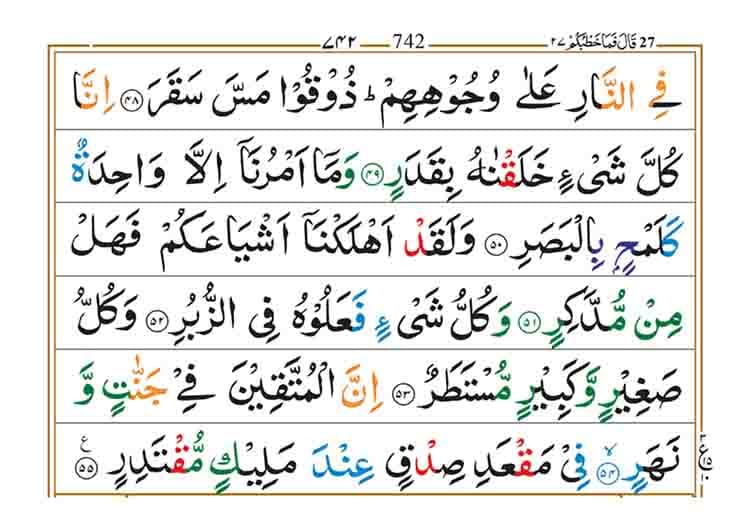 27 قَالَ فَمَا خَطْبُكُمْ ٢٧ 742 ٧٤٢
فِى النَّارِ عَلٰى وُجُوْهِهِمْ ؕ ذُوْقُوْا مَسَّ سَقَرَ ﴿۴۸﴾ اِنَّا
كُلَّ شَىْءٍ خَلَقْنٰهُ بِقَدَرٍ ﴿۴۹﴾ وَمَاۤ اَمْرُنَاۤ اِلَّا وَاحِدَةٌ
كَلَمْحٍۭ بِالْبَصَرِ ﴿۵۰﴾ وَلَقَدْ اَهْلَكْنَاۤ اَشْيَاعَكُمْ فَهَلْ
مِنْ مُّدَّكِرٍ ﴿۵۱﴾ وَكُلُّ شَىْءٍ فَعَلُوْهُ فِى الزُّبُرِ ﴿۵۲﴾ وَكُلُّ
صَغِيْرٍ وَّكَبِيْرٍ مُّسْتَطَرٌ ﴿۵۳﴾ اِنَّ الْمُتَّقِيْنَ فِىْ جَنّٰتٍ وَّ
نَهَرٍ ۙ﴿۵۴﴾ فِىْ مَقْعَدِ صِدْقٍ عِنْدَ مَلِيْكٍ مُّقْتَدِرٍ ﴿۵۵﴾ ع